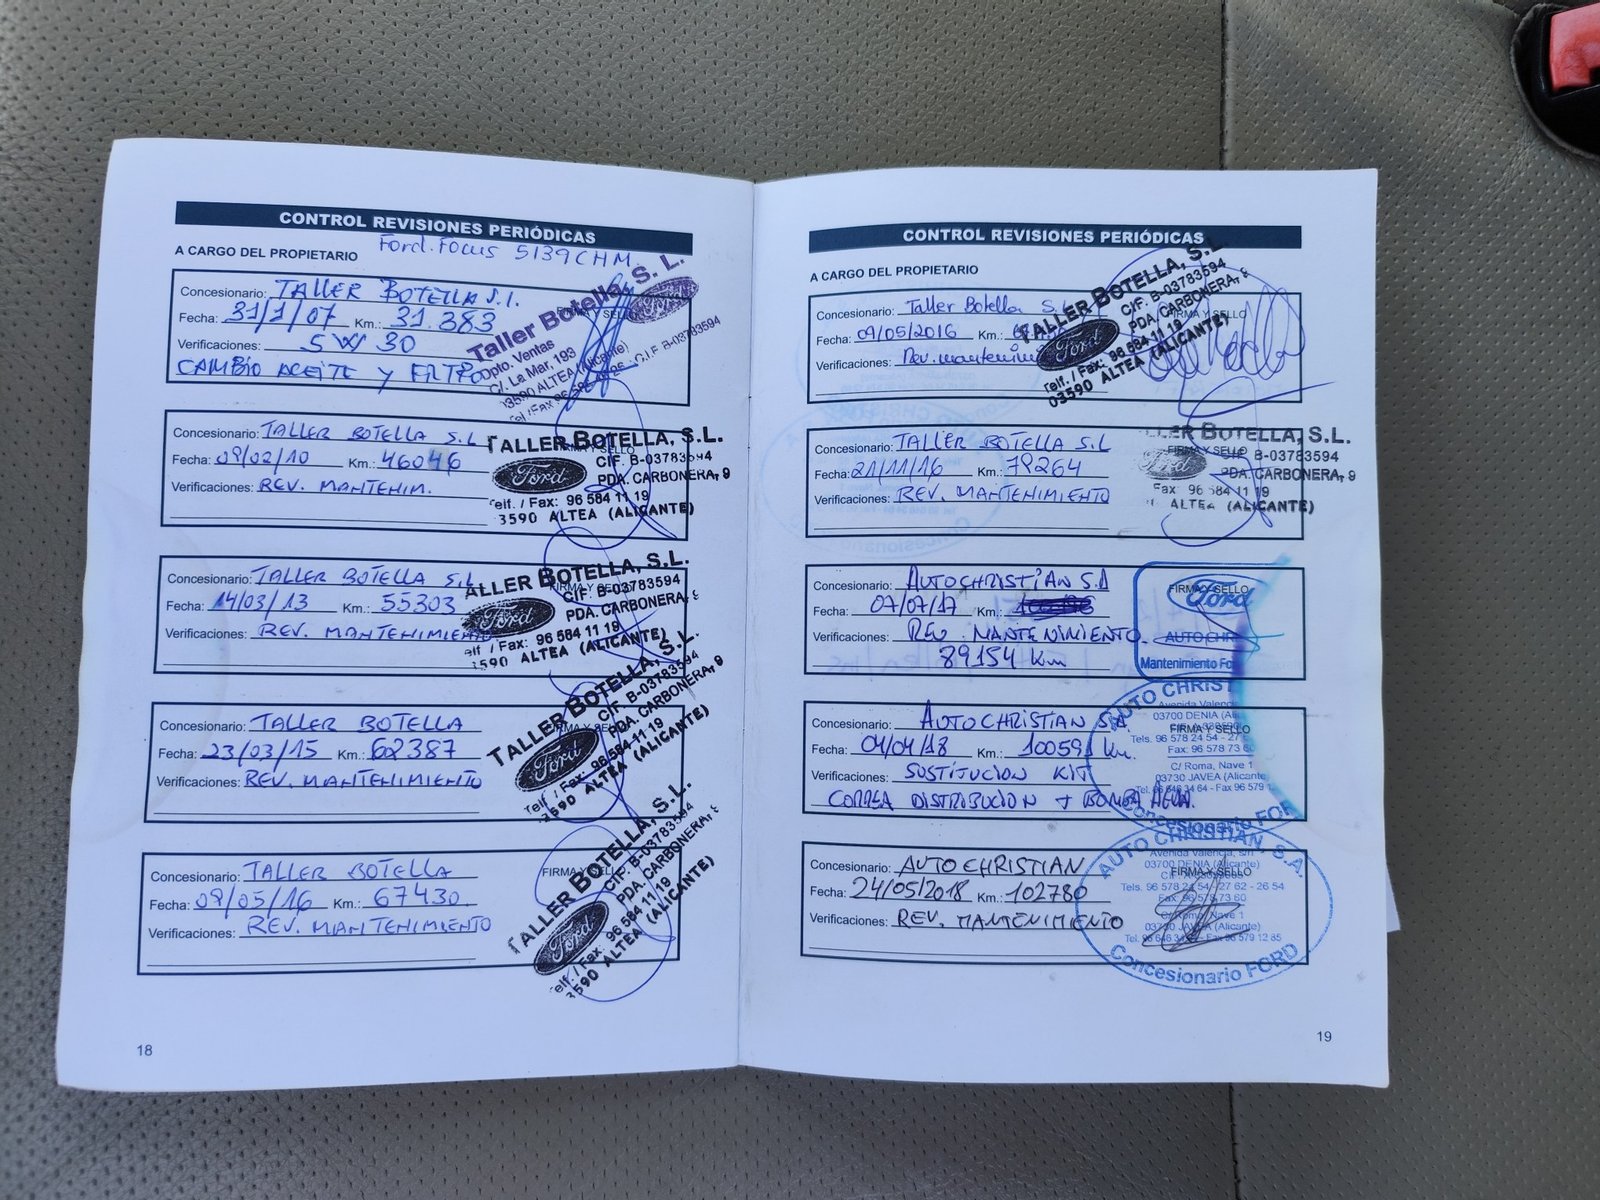 CONTROL REVISIONES PERIÓDICAS
Ford Focus 5139CHM
A CARGO DEL PROPIETARIO
Concesionario: TALLER BOTELLA S.L.
Fecha: 31/1/07 Km.: 31.383
Verificaciones: 5W30
CAMBIO ACEITE Y FILTRO
Taller Botella, S. L.
Ford
Dpto. Ventas
C/. La Mar, 193
03590 ALTEA (Alicante)
C.I.F. B-03783594
Concesionario: TALLER BOTELLA S.L
Fecha: 09/02/10 Km.: 46046
Verificaciones: REV. MANTENIM.
TALLER BOTELLA, S.L.
Ford
CIF. B-03783594
PDA. CARBONERA, 9
Telf. / Fax: 96 584 11 19
3590 ALTEA (ALICANTE)
Concesionario: TALLER BOTELLA S.L
Fecha: 14/03/13 Km.: 55303
Verificaciones: REV. MANTENIMIENTO
FIRMA Y SELLO
TALLER BOTELLA, S.L.
Ford
CIF. B-03783594
PDA. CARBONERA,
elf. / Fax: 96 584 11 19
3590 ALTEA (ALICANTE)
Concesionario: TALLER BOTELLA
Fecha: 23/03/15 Km.: 62387
Verificaciones: REV. MANTENIMIENTO
TALLER BOTELLA, S.L.
Ford
CIF. B-03783594
PDA. CARBONERA, 9
Telf. / Fax: 96 584 11 19
03590 ALTEA (ALICANTE)
Concesionario: TALLER BOTELLA
Fecha: 09/05/16 Km.: 67430
Verificaciones: REV. MANTENIMIENTO
TALLER BOTELLA, S.L.
Ford
CIF. B-03783594
PDA. CARBONERA,
Telf. / Fax: 96 584 11 19
03590 ALTEA (ALICANTE)
18
CONTROL REVISIONES PERIÓDICAS
A CARGO DEL PROPIETARIO
Concesionario: Taller Botella S.L
Fecha: 09/05/2016 Km.:
Verificaciones: Rev. mantenim
TALLER BOTELLA, S.L
Ford
CIF. B-03783594
PDA. CARBONERA,
Telf. / Fax: 96 584 11 19
03590 ALTEA (ALICANTE)
Concesionario: TALLER BOTELLA S.L
Fecha: 21/11/16 Km.: 78264
Verificaciones: REV. MANTENIMIENTO
FIRMA Y SELLO
LLER BOTELLA, S.L.
B-03783594
PDA. CARBONERA, 9
Fax: 96 584 11 19
ALTEA (ALICANTE)
Concesionario: AUTOCHRISTIAN S.A
Fecha: 07/07/17 Km.:
Verificaciones: REV. MANTENIMIENTO
89154 Km
FIRMA Y SELLO
Ford
AUTO CHRI
Mantenimiento For
Concesionario: AUTOCHRISTIAN S.A.
Fecha: 04/04/18 Km.: 100591 Km.
Verificaciones: SUSTITUCION KIT
CORREA DISTRIBUCION + BOMBA AGUA.
AUTO CHRIST
Avenida Valenc
03700 DENIA (Ali
FIRMA Y SELLO
Tels. 96 578 24 54 - 27
Fax: 96 578 73 6
C/ Roma, Nave 1
03730 JAVEA (Alicante
Concesionario FOR
Concesionario: AUTOCHRISTIAN
Fecha: 24/05/2018 Km.: 102780
Verificaciones: REV. MANTENIMIENTO
AUTO CHRISTIAN, S.A.
Avenida Valencia, s/n
03700 DENIA (Alicante)
FIRMA Y SELLO
Tels. 96 578 24 54 - 27 62 - 26 54
Fax 96 578 73 60
C/ Roma, Nave 1
03730 JAVEA (Alicante)
Fax 96 579 12 85
Concesionario FORD
19